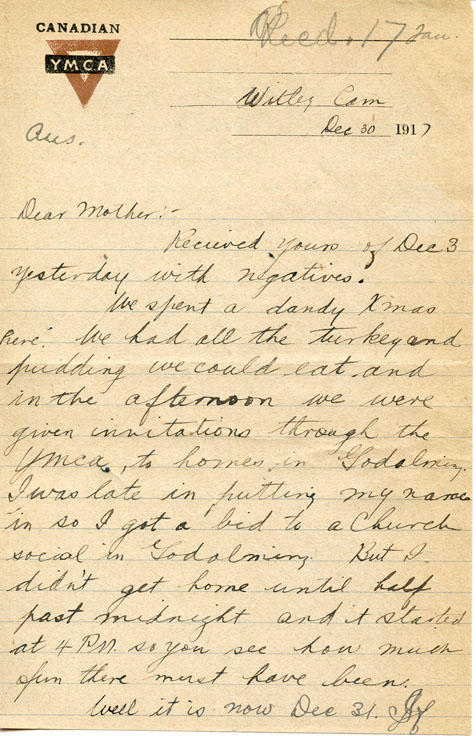 CANADIAN
YMCA
Recd. 17 Jan.
Witley Cam
Dec 30 1917
Ans.
Dear Mother:-
Recieved yours of Dec 3
yesterday with negatives.
We spent a dandy Xmas
here. We had all the turkey and
pudding we could eat and
in the afternoon we were
given invitations through the
YMCA, to homes in Godalming.
I was late in putting my name
in so I got a bid to a Church
social in Godalming. But I
didn't get home until half
past midnight and it started
at 4 P.M. so you see how much
fun there must have been.
Well it is now Dec 31. If